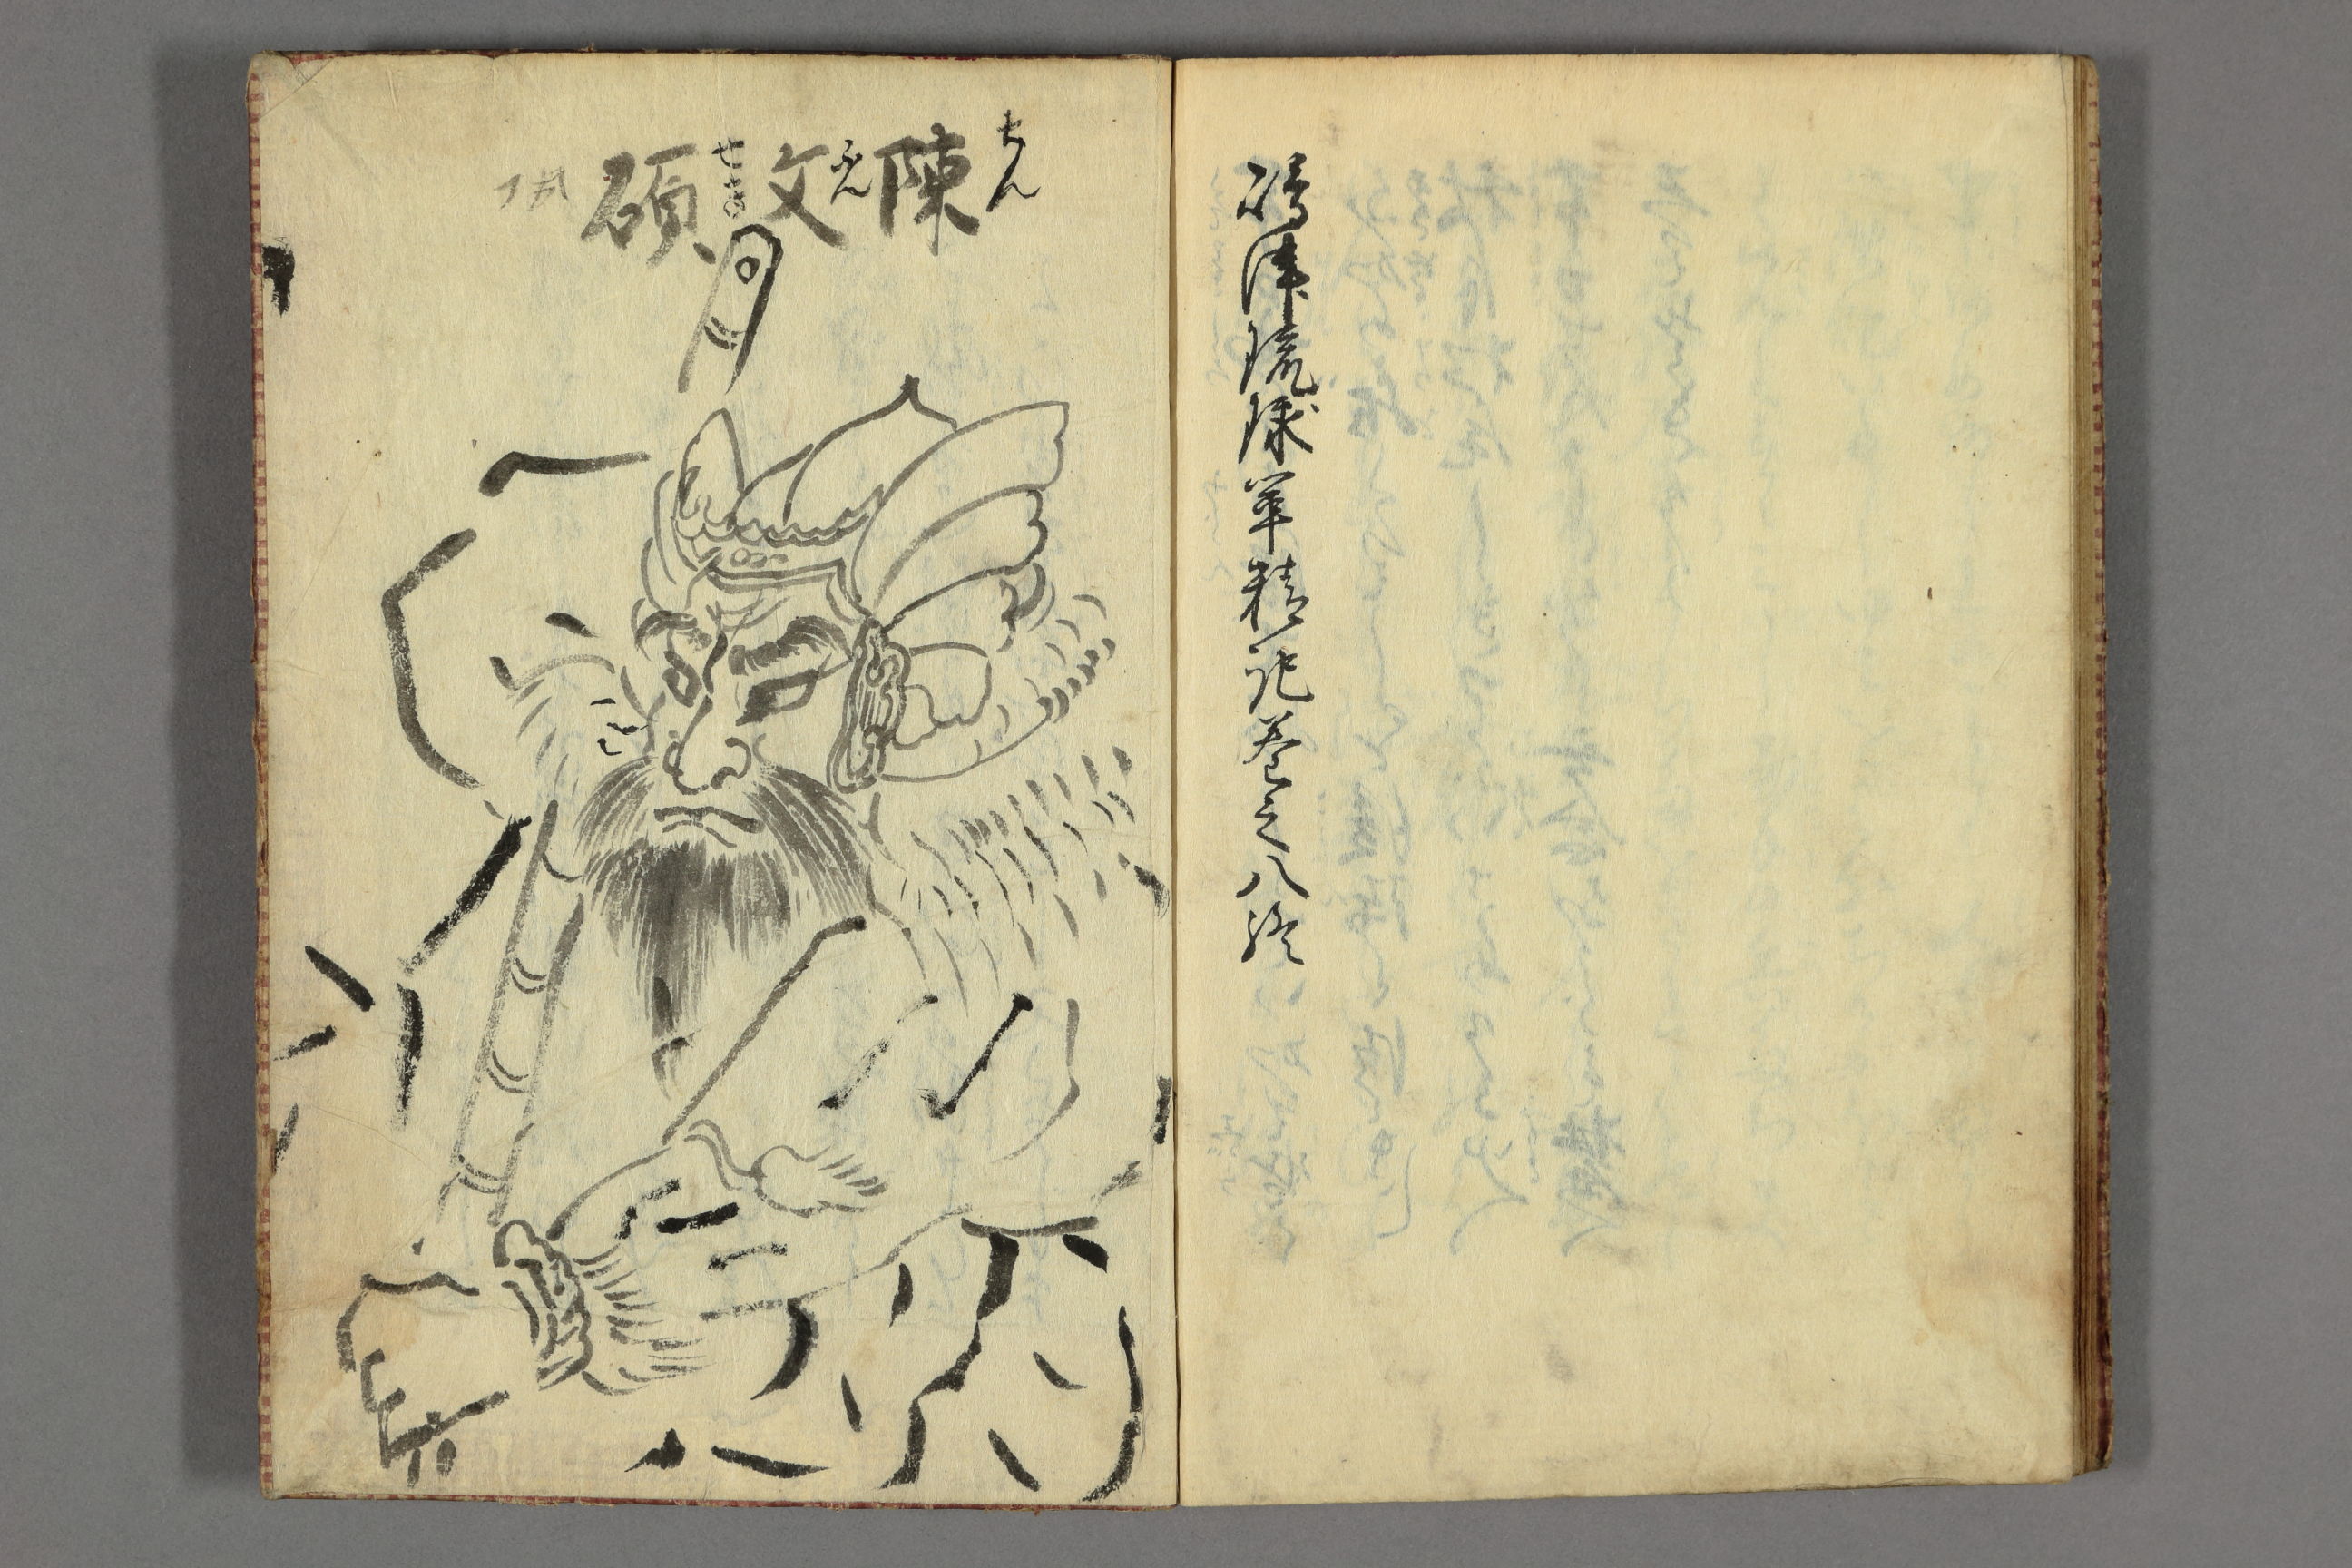 嶋津琉球軍精記巻之八終
陳文碩
ちん
ぶん
せき